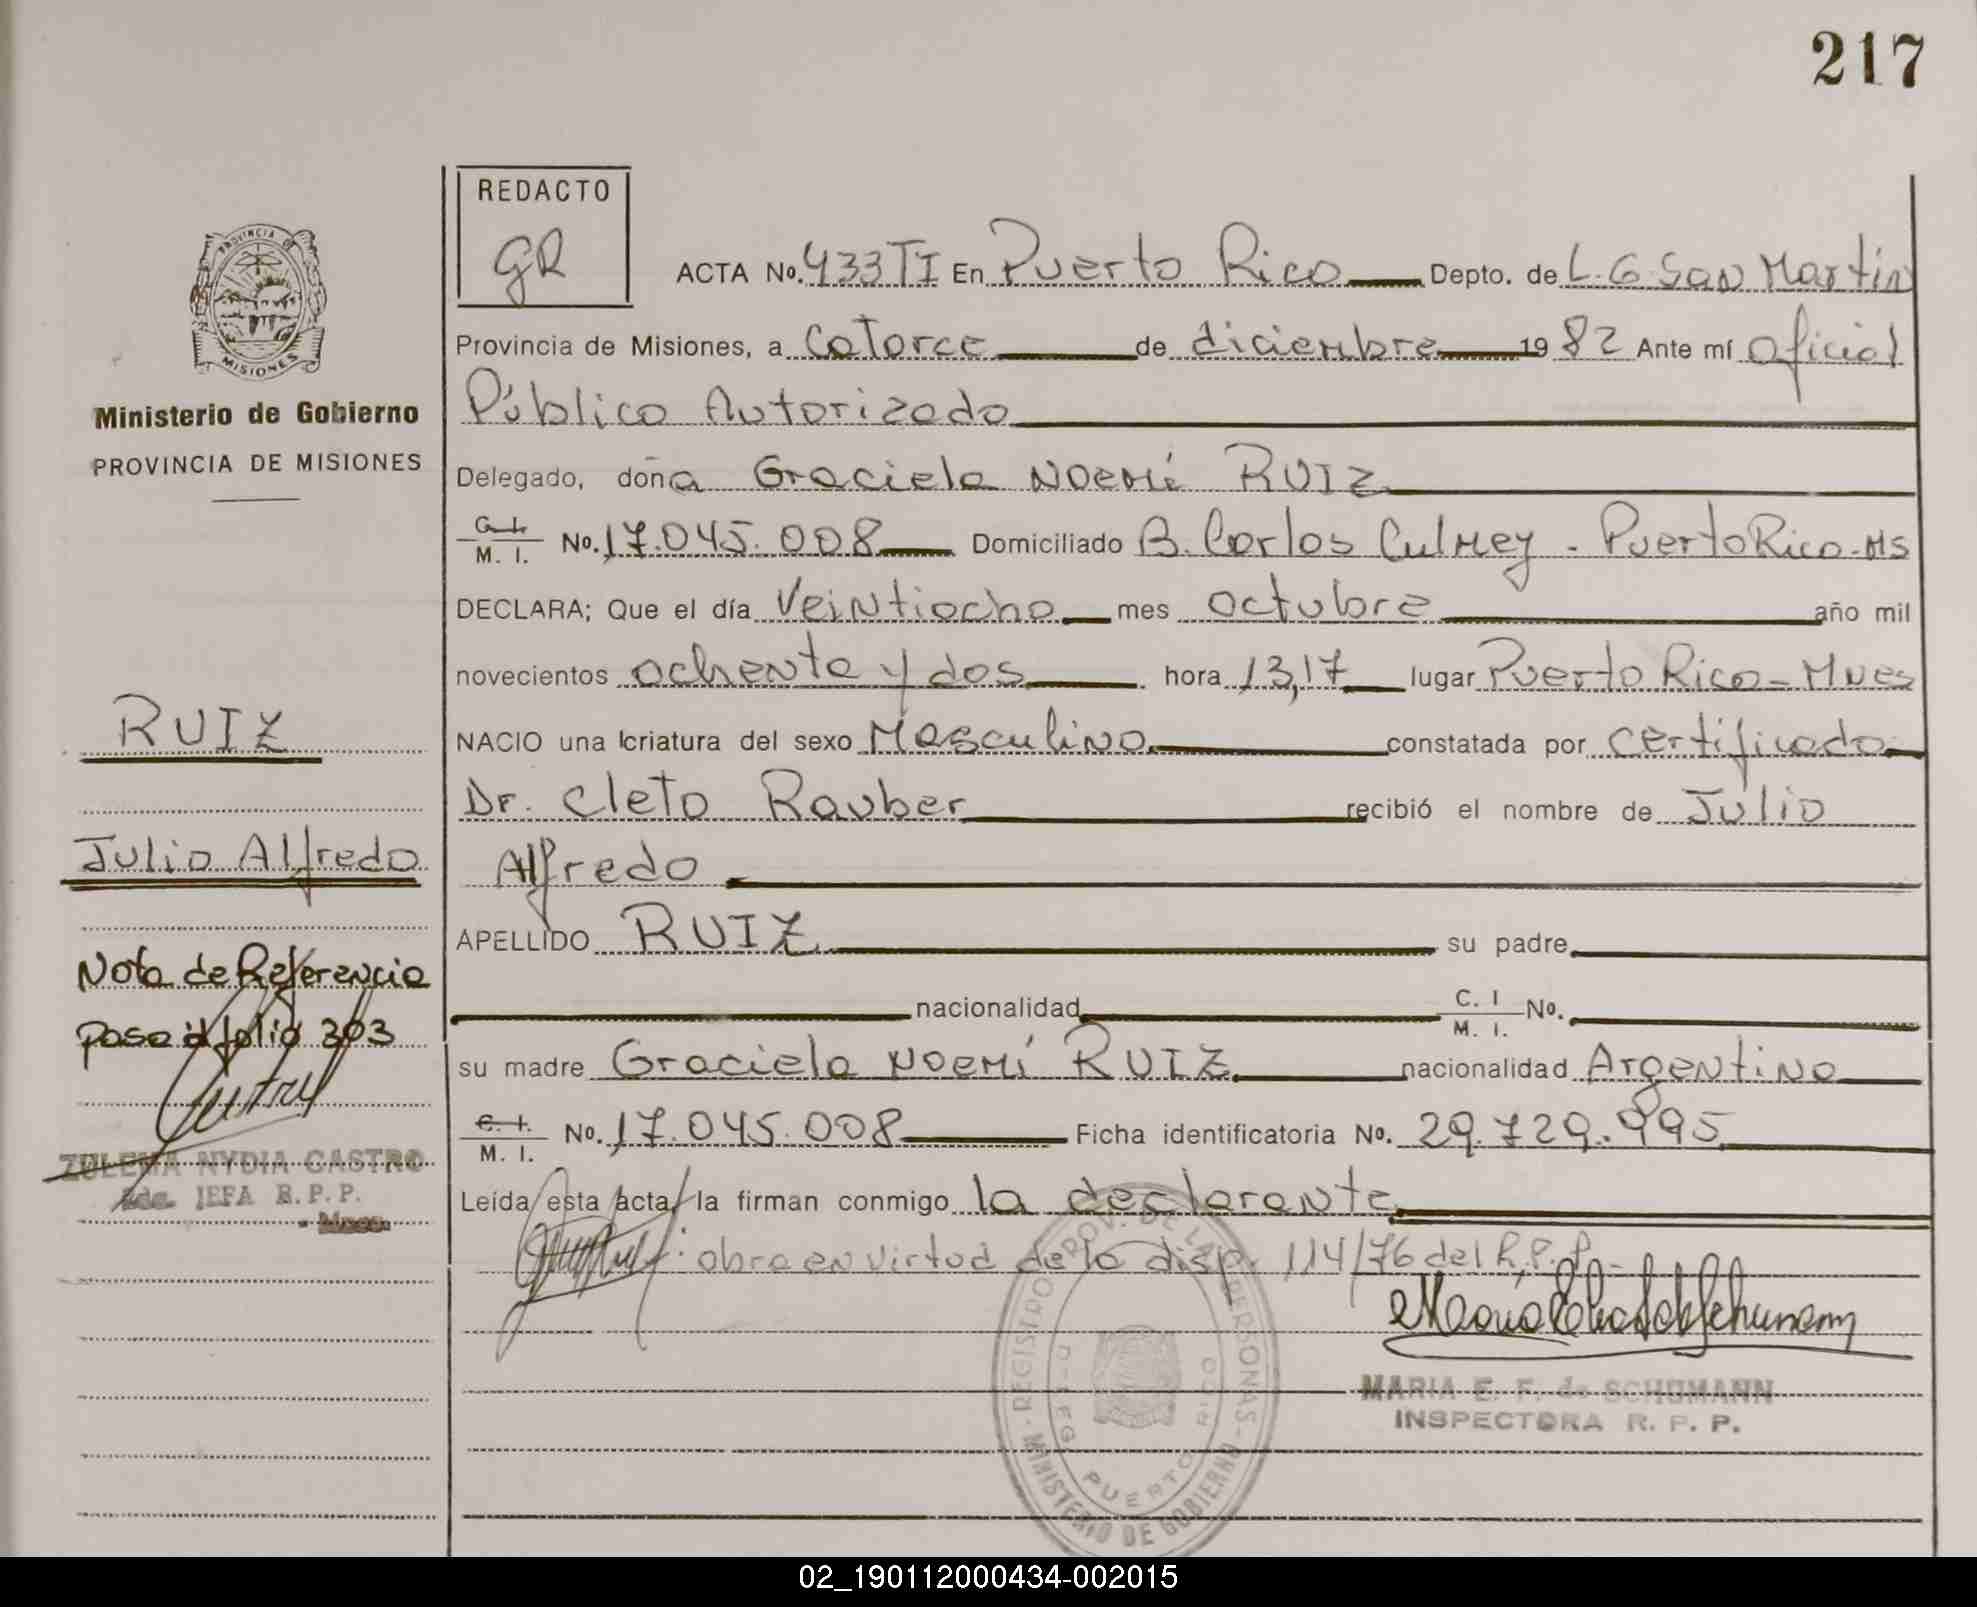 217
REDACTO
GR
PROVINCIA DE
MISIONES
Ministerio de Gobierno
PROVINCIA DE MISIONES
ACTA No. 433 TI En Puerto Rico Depto. de L. G San Martín
Provincia de Misiones, a catorce de diciembre 19 82 Ante mí oficial
Público Autorizado
Delegado, doña Graciela Noemí RUIZ
C. I. M. I. No. 17.045.008 Domiciliado B. Carlos Culmey - Puerto Rico - Ms
DECLARA; Que el día veintiocho mes octubre año mil
novecientos ochenta y dos hora 13,17 lugar Puerto Rico - Mnes
NACIO una criatura del sexo Masculino constatada por certificado
Dr. Cleto Rauber recibió el nombre de Julio
Alfredo
APELLIDO RUIZ su padre
nacionalidad C. I M. I. No.
su madre Graciela Noemí RUIZ nacionalidad Argentina
C. I. M. I. No. 17.045.008 Ficha identificatoria No. 29.729.995
Leída esta acta, la firman conmigo la declarante
: obra en virtud de la disp. 114/76 del R.P.P.-
MARIA E. F. de SCHUMANN
INSPECTORA R. P. P.
REGISTRO PROV. DE LAS PERSONAS - MINISTERIO DE GOBIERNO
PUERTO RICO
RUIZ
Julio Alfredo
Nota de Referencia
pasa al folio 303
ZULEMA NYDIA CASTRO
JEFA R. P. P.
02_190112000434-002015